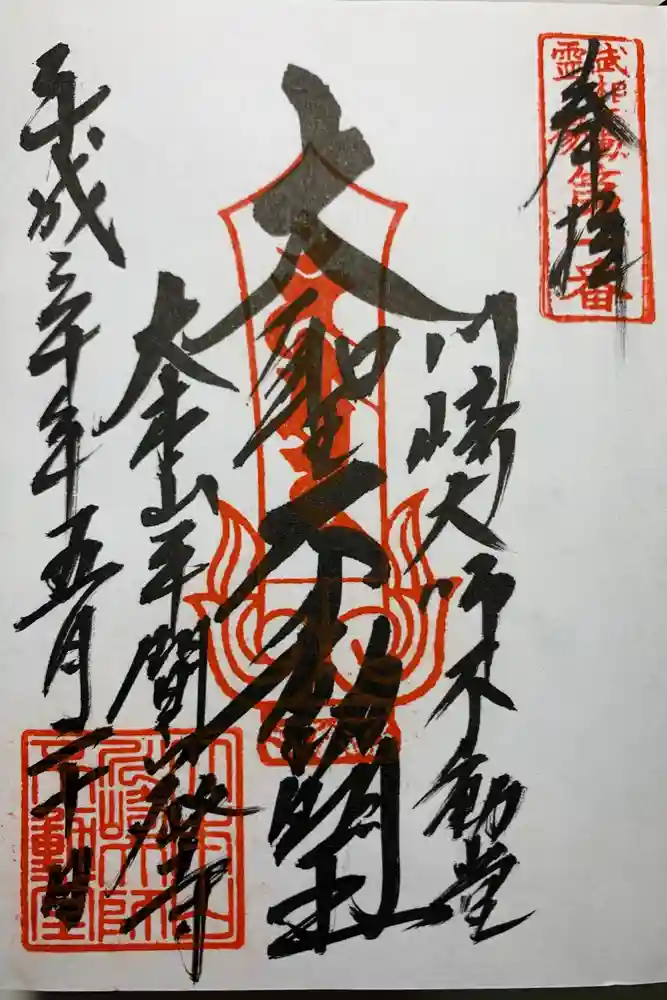 奉拝
武相不動尊
霊場
第一番
川崎大師不動堂
大聖不動明王
大本山平間寺
平成三十年五月二十日
大本山
川崎大師
不動堂